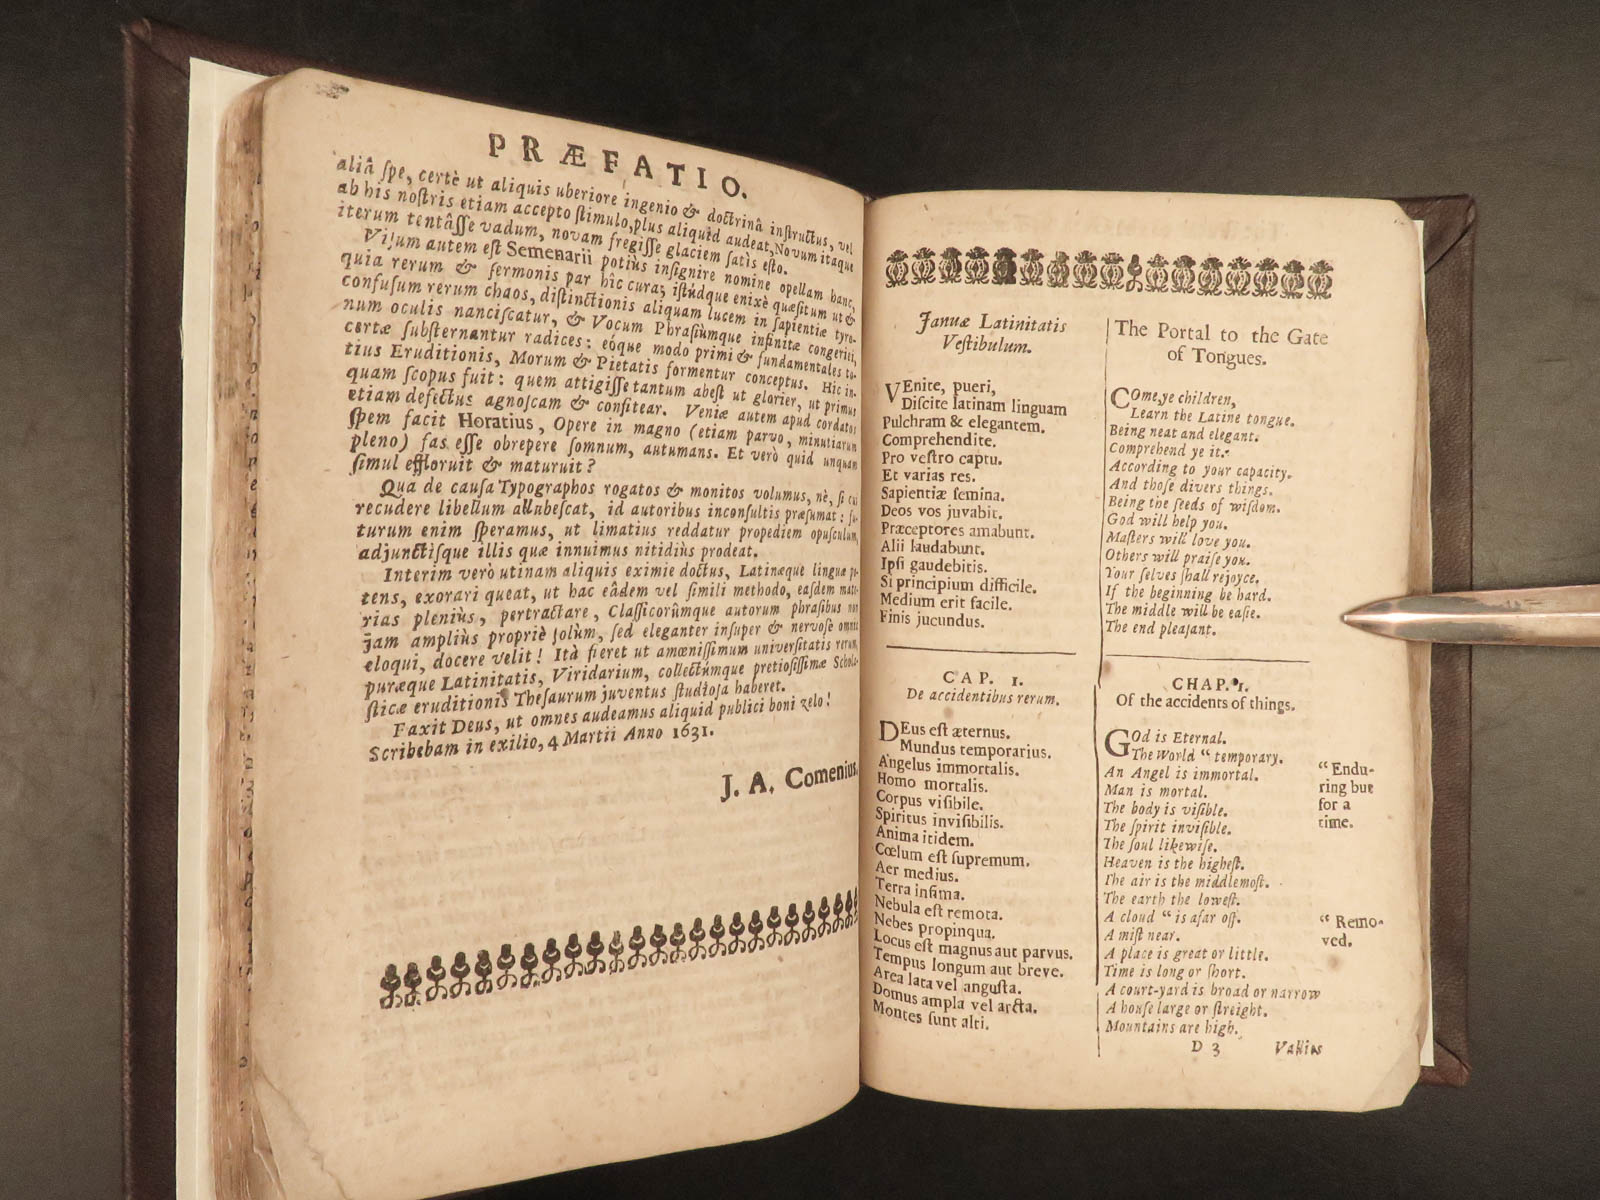 PRÆFATIO.
aliâ ſpe, certè ut aliquis uberiore ingenio & doctrinâ inſtructus, vel
ab his noſtris etiam accepto ſtimulo, plus aliquid audeat, Novum itaque
iterum tentâſſe vadum, novam fregiſſe glaciem ſatis eſto.
Viſum autem eſt Semenarii potiùs inſignire nomine opellam hanc,
quia rerum & ſermonis par hîc cura; iſtúdque enixè quæſitum ut &
confuſum rerum chaos, diſtinctionis aliquam lucem in ſapientiæ tyro-
num oculis nanciſcatur, & Vocum Phraſiumque infinitæ congeriei,
certæ ſubſternantur radices: eóque modo primi & fundamentales to-
tius Eruditionis, Morum & Pietatis formentur conceptus. Hic in-
quam ſcopus fuit: quem attigiſſe tantum abeſt ut glorier, ut primus
etiam defectus agnoſcam & confitear. Veniæ autem apud cordatos
ſpem facit Horatius, Opere in magno (etiam parvo, minutiarum
pleno) fas eſſe obrepere ſomnum, autumans. Et verò quid unquam
ſimul effloruit & maturuit?
Qua de cauſa Typographos rogatos & monitos volumus, nè, ſi cui
recudere libellum allubeſcat, id autoribus inconſultis præſumat: fu-
turum enim ſperamus, ut limatius reddatur propediem opuſculum,
adjunctiſque illis quæ innuimus nitidiùs prodeat.
Interim verò utinam aliquis eximie doctus, Latinæque linguæ po-
tens, exorari queat, ut hac eâdem vel ſimili methodo, eaſdem mate-
rias pleniùs, pertractare, Claſſicorúmque autorum phraſibus non
jam ampliùs propriè ſolùm, ſed eleganter inſuper & nervoſe omnia
eloqui, docere velit! Ità fieret ut amœniſſimum univerſitatis rerum,
puræque Latinitatis, Viridarium, collectúmque pretioſiſſimæ Schola-
ſticæ eruditionis Theſaurum juventus ſtudioſa haberet.
Faxit Deus, ut omnes audeamus aliquid publici boni zelo!
Scribebam in exilio, 4 Martii Anno 1631.
J. A. Comenius.
Januæ Latinitatis
Veſtibulum.
VEnite, pueri,
Diſcite latinam linguam
Pulchram & elegantem.
Comprehendite.
Pro veſtro captu.
Et varias res.
Sapientiæ ſemina.
Deos vos juvabit.
Præceptores amabunt.
Alii laudabunt.
Ipſi gaudebitis.
Si principium difficile.
Medium erit facile.
Finis jucundus.
CAP. I.
De accidentibus rerum.
DEus eſt æternus.
Mundus temporarius.
Angelus immortalis.
Homo mortalis.
Corpus viſibile.
Spiritus inviſibilis.
Anima itidem.
Cœlum eſt ſupremum.
Aer medius.
Terra infima.
Nebula eſt remota.
Nebes propinqua.
Locus eſt magnus aut parvus.
Tempus longum aut breve.
Area lata vel anguſta.
Domus ampla vel arcta.
Montes ſunt alti.
The Portal to the Gate
of Tongues.
COme, ye children,
Learn the Latine tongue.
Being neat and elegant.
Comprehend ye it.
According to your capacity.
And thoſe divers things.
Being the ſeeds of wiſdom.
God will help you.
Maſters will love you.
Others will praiſe you.
Your ſelves ſhall rejoyce.
If the beginning be hard.
The middle will be eaſie.
The end pleaſant.
CHAP. 1.
Of the accidents of things.
GOd is Eternal.
The World “ temporary.
An Angel is immortal.
Man is mortal.
The body is viſible.
The ſpirit inviſible.
The ſoul likewiſe.
Heaven is the higheſt.
The air is the middlemoſt.
The earth the loweſt.
A cloud “ is afar off.
A miſt near.
A place is great or little.
Time is long or ſhort.
A court-yard is broad or narrow
A houſe large or ſtreight.
Mountains are high.
“ Endu-
ring but
for a
time.
“ Remo-
ved.
D 3 Vallies